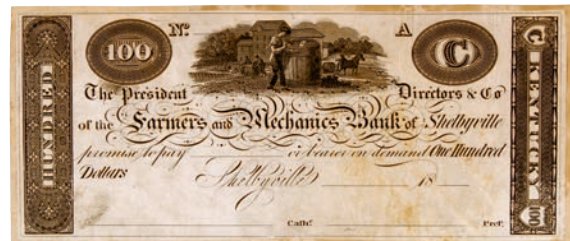 HUNDRED
100
Nº
A
C
C KENTUCKY 100
The President Directors & Co
of the Farmers and Mechanics Bank of Shelbyville
promise to pay or bearer on demand One Hundred
Dollars Shelbyville 18
Cashr. Prest.